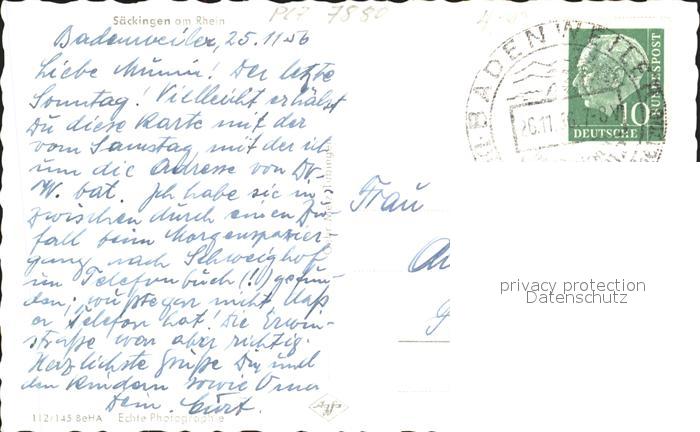 Säckingen am Rhein
PLZ 7880
Badenweiler, 25.11.56
Liebe Mimmi! Der letzte
Sonntag! Vielleicht erhälst
Du diese Karte mit der
vom Samstag, mit der ich
um die Adresse von Dr.
W. bat. Ich habe sie in-
zwischen durch einen Zu-
fall beim Morgenspazier-
gang nach Schweighof
im Telefonbuch (!!) gefun-
den; wußte gar nicht daß
er Telefon hat! Die Erwin-
straße war aber richtig.
Herzlichste Grüße Dir und
den Kindern sowie Oma
Dein Curt.
112/145 BeHA Echte Photographie
Agfa
Frau
BADENWEILER
26.11.56
10
DEUTSCHE
BUNDESPOST
privacy protection
Datenschutz